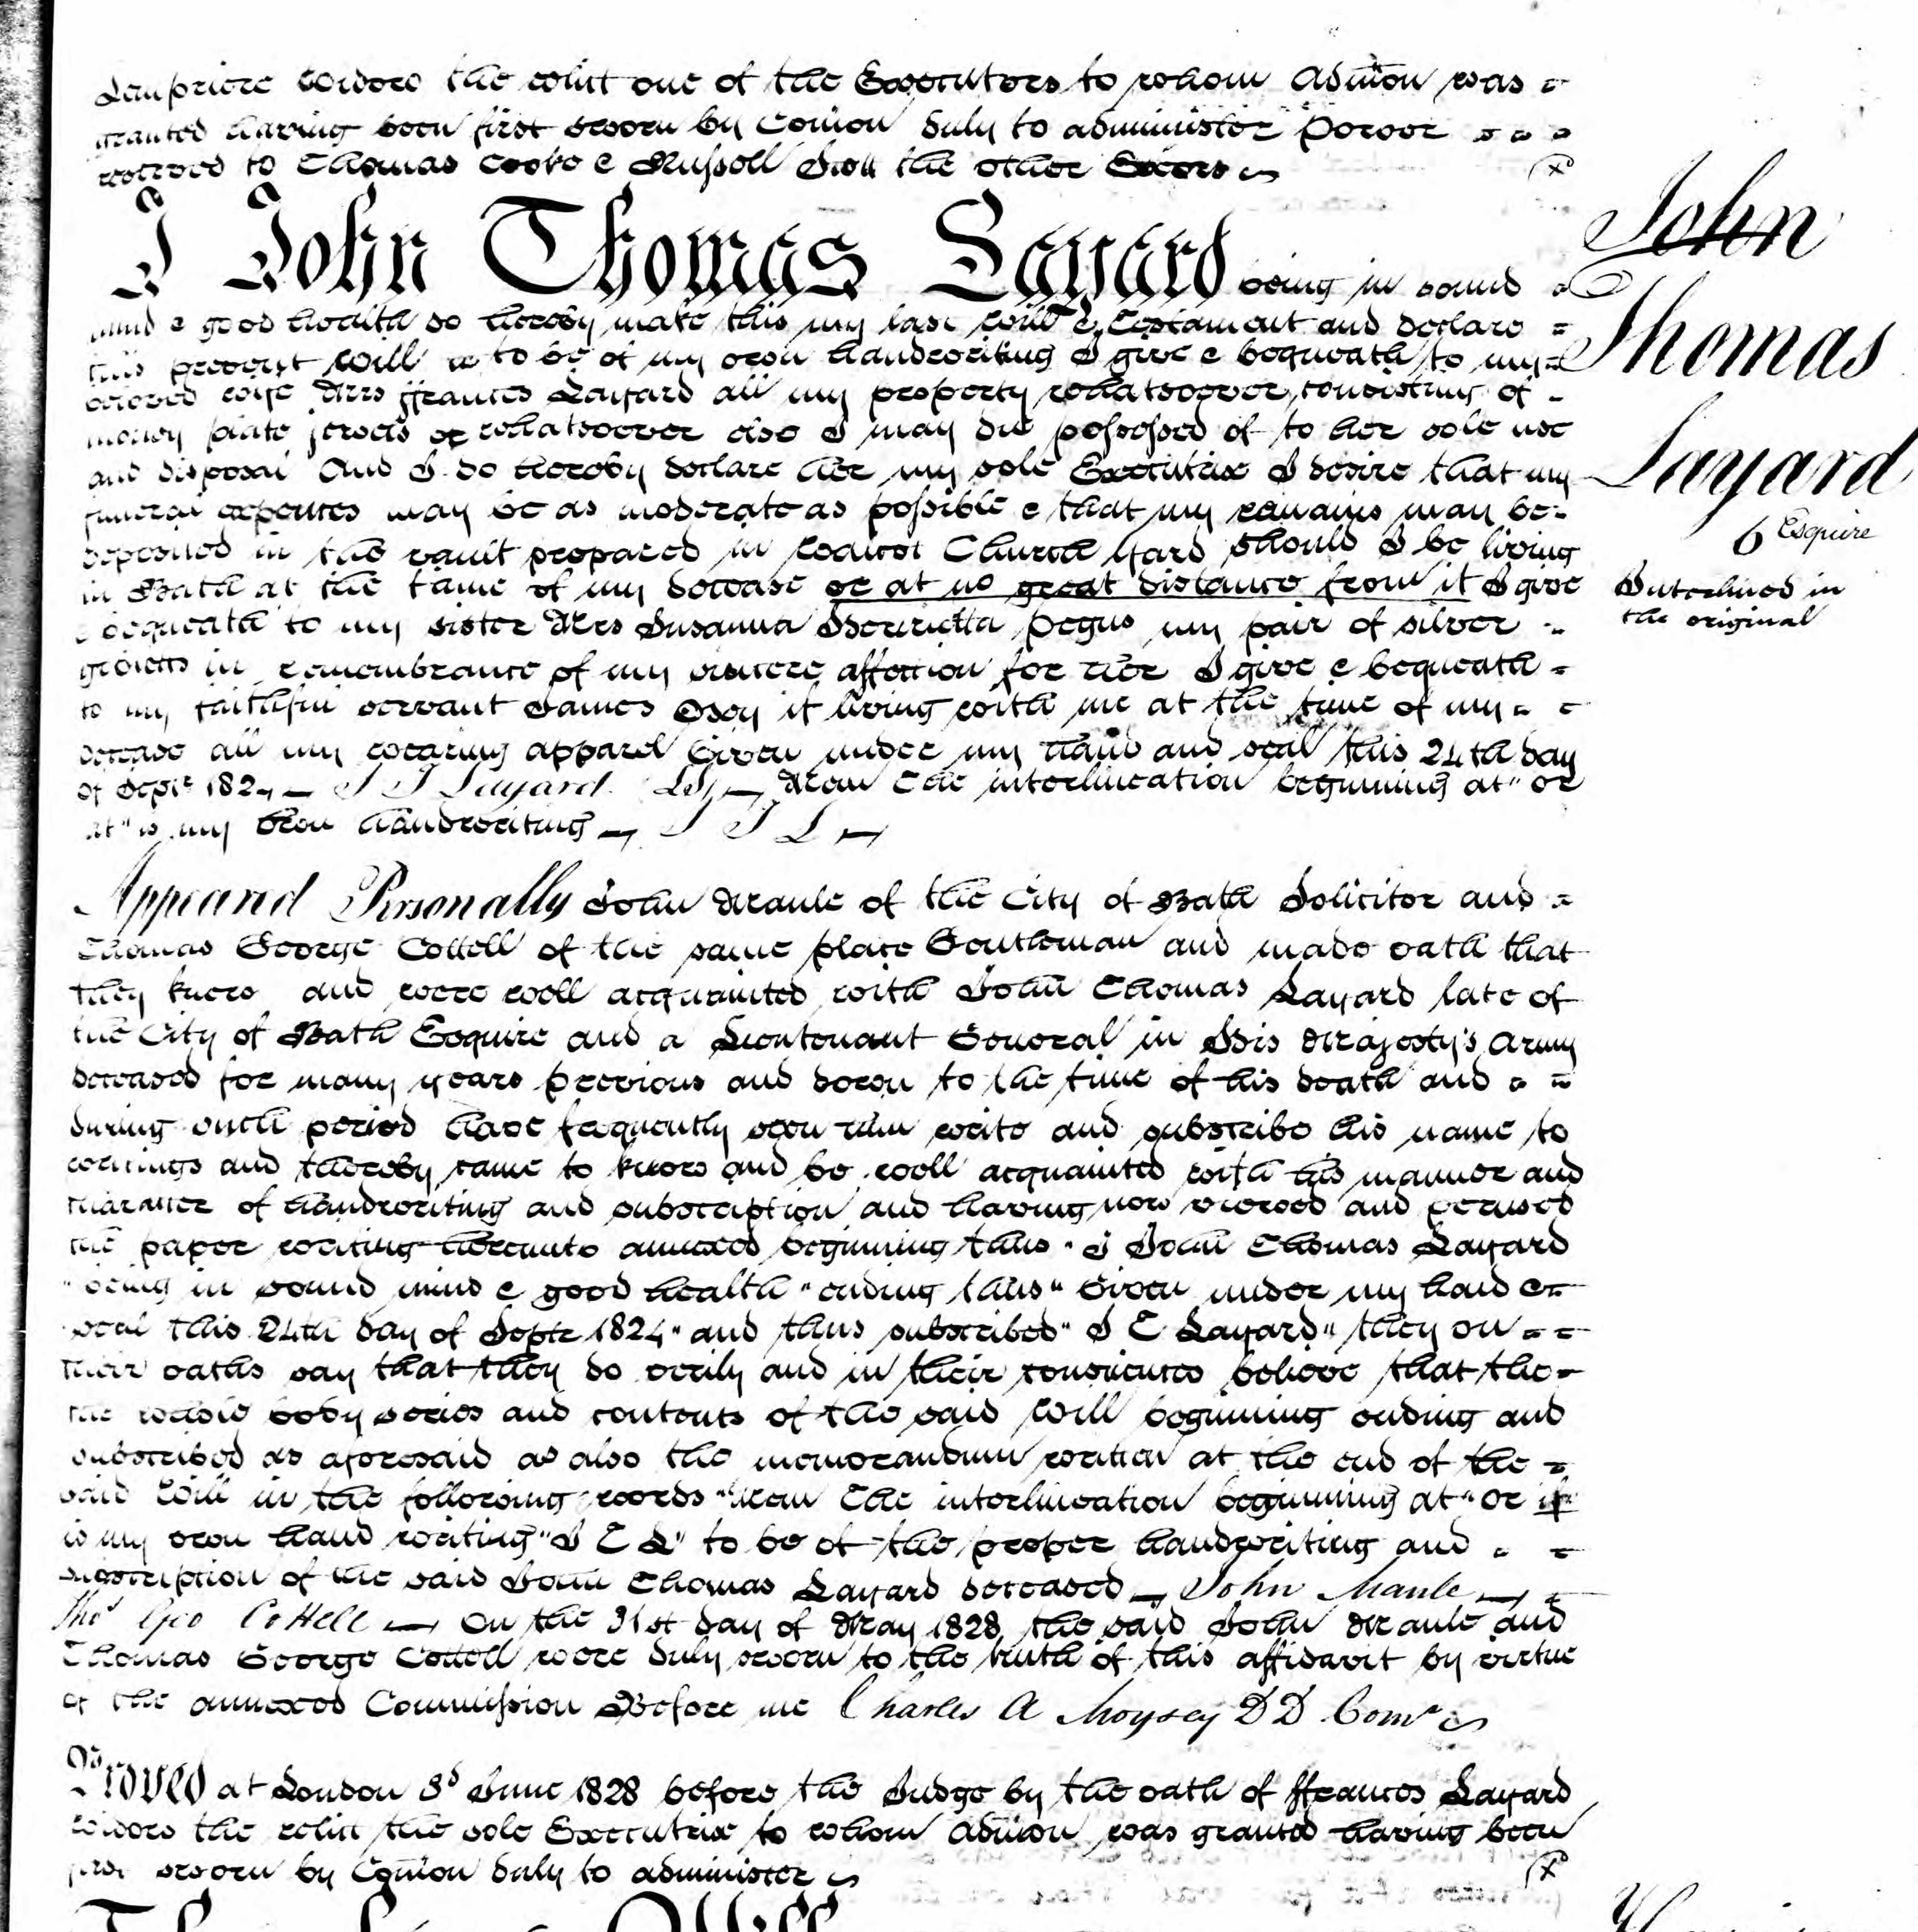 Lempriere widow the relict one of the Executors to whom Admon was
granted having been first sworn by Comon duly to administer Power
reserved to Thomas Cooke & Russell the other Exors
I John Thomas Layard being in sound
mind & good health do hereby make this my last Will & Testament and declare
this present Will to be of my own handwriting I give & bequeath to my
beloved wife Mrs ffrances Layard all my property whatsoever, consisting of
money plate jewels or whatsoever else I may die possessed of to her sole use
and disposal And I do hereby declare her my sole Executrix I desire that my
funeral expences may be as moderate as possible & that my remains may be
deposited in the vault prepared in Church Yard should I be living
in Bath at the time of my decease or at no great distance from it I give
& bequeath to my sister Mrs Susanna Henrietta Pegus my pair of silver
in remembrance of my sincere affection for her I give & bequeath
to my faithful servant James if living with me at the time of my
decease all my wearing apparel Given under my hand and seal this 24th day
of Septr 1824 – J T Layard LS – Mem The interlineation beginning at "or
at" is my own handwriting – J T L –
Appeared Personally John Maule of the City of Bath Solicitor and
Thomas George Cottell of the same place Gentleman and made oath that
they knew and were well acquainted with John Thomas Layard late of
the City of Bath Esquire and a Lieutenant General in His Majesty's Army
deceased for many years previous and down to the time of his death and
during such period have frequently seen him write and subscribe his name to
writings and thereby came to know and be well acquainted with his manner and
character of handwriting and subscription and having now viewed and perused
the paper writing hereunto annexed beginning thus "I John Thomas Layard
"being in sound mind & good health" ending thus "Given under my hand &
seal this 24th day of Septr 1824" and thus subscribed "J T Layard" they on
their oaths say that they do verily and in their consciences believe that the
the whole body series and contents of the said Will beginning ending and
subscribed as aforesaid as also the memorandum written at the end of the
said Will in the following words "Mem The interlineation beginning at "or
is my own hand writing "J T L" to be of the proper handwriting and
subscription of the said John Thomas Layard deceased – John Maule –
Thos Geo Cottell – On the 31st day of May 1828 the said John Maule and
Thomas George Cottell were duly sworn to the truth of this affidavit by virtue
of the annexed Commission Before me Charles A Moysey D D Comr
Proved at London 3d June 1828 before the Judge by the oath of ffrances Layard
widow the relict the sole Executrix to whom Admon was granted having been
first sworn by Comon duly to administer
John
Thomas
Layard
6 Esquire
Interlined in
the original